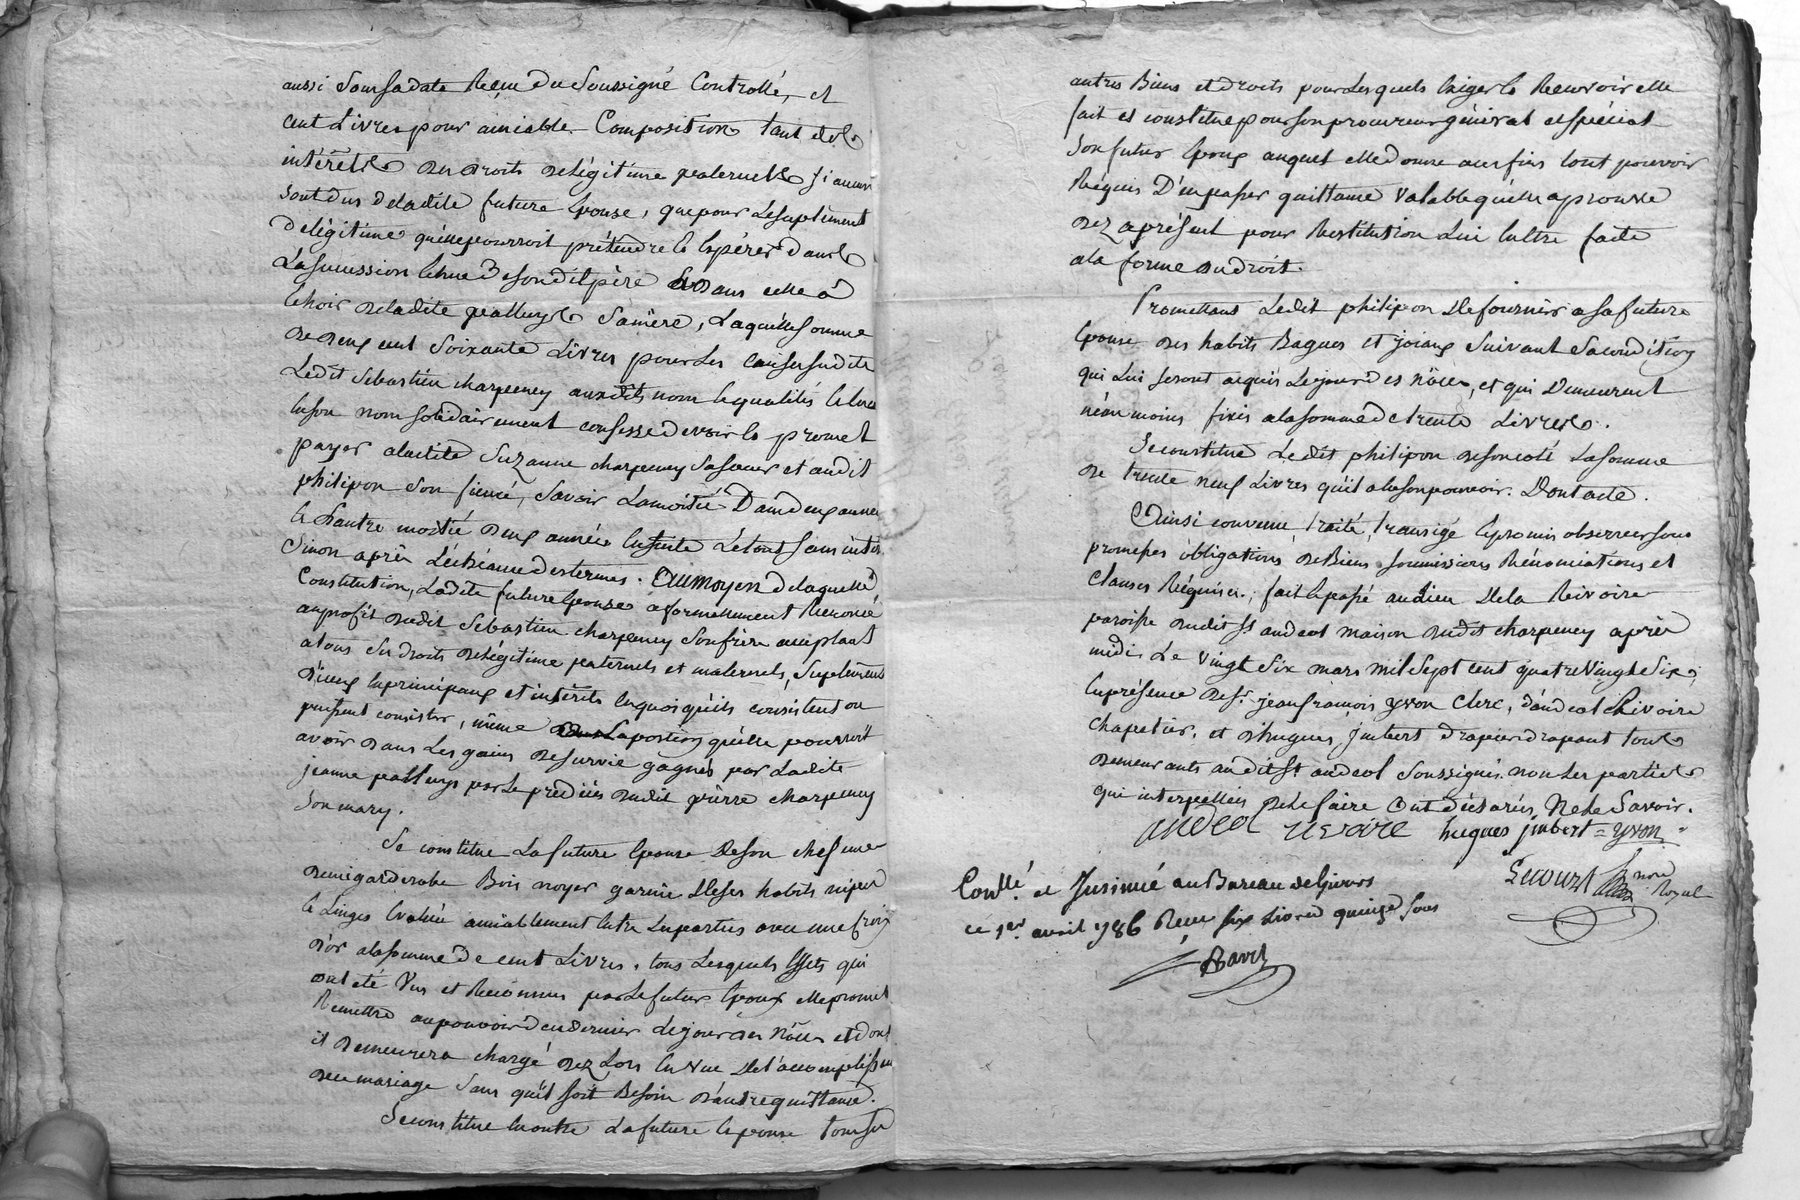 aussi Sous sa date Reçu du Soussigné Controllé, et
cent Livres pour amiable Composition tant des
intérêts des droits de légitime paternels si aucun
sont dus a ladite future Epouse, que pour le suplément
de légitime qu'elle pourroit prétendre Et Espérer dans
La succession échue de son dit père Et dans celle à
Echoir de ladite pealluys Sa mère, Laquelle somme
de deux cent Soixante Livres pour Les causes susdites
Ledit Sebastien charpeney auxdits noms Et qualités Et
En son nom solidairement confesse devoir Et promet
payer a ladite Suzanne charpeney Sa soeur et audit
philipon Son fiancé, Savoir La moitié D'ans deux années
Et L'autre moitié deux années Ensuite Le tout sans intérêt
Sinon après L'échéance des termes. Au moyen de laquelle
Constitution, Ladite future Epouse a formellement Renoncé
au profit dudit Sebastien charpeney Son frère acceptant
a tous Ses droits de légitime paternels et maternels, Supléments
d'iceux En principaux et intérêts En quoi qu'ils consistent ou
puissent consister, même La portion qu'elle pourroit
avoir dans Les gains de survie gagnés par Ladite
jeanne pealluys par Le prédécès dudit pierre charpeney
Son mary.
Se constitue La future Epouse De son chef une
demi garderobe Bois noyer garnie De ses habits nipes
Et Linges Evalués amiablement Entre Les parties avec une croix
d'or a la somme de cent Livres, tous Lesquels Effets qui
ont été Vus et Reconnus par Le futur Epoux elle promet
Remettre au pouvoir de ce dernier Le jour des Nôces et dont
il demeurera chargé dez Lors En Vue De L'accomplissement
du mariage Sans qu'il soit Besoin d'autre quittance.
Se constitue En outre La future Epouse tous Ses
autres Biens et droits pour Lesquels Exiger Et Recevoir elle
fait et constitue pour son procureur général et spécial
Son futur Epoux auquel elle donne aux fins tout pouvoir
Requis D'en passer quittance Valable qu'elle aprouve
dez a présent pour Restitution Lui En être faite
a la forme du droit.
Promettant Ledit philipon De fournir a sa future
Epouse des habits Bagues et joiaux Suivant Sa condition
qui Lui seront acquis Le jour des Nôces, et qui Demeurent
néanmoins fixés a la somme de trente Livres.
Se constitue Ledit philipon de son coté La somme
de trente neuf Livres qu'il a En son pouvoir. Dont acte.
Ainsi convenu, traité, transigé Et promis observer sous
promesses obligations de Biens soumissions Rénonciations et
Clauses Réquises; fait Et passé au Lieu De la Rivoire
paroisse dudit St andeol maison dudit charpeney après
midi Le Vingt Six mars mil Sept cent quatre Vingt Six;
En présence de Sr. jean françois yvon Clerc, d'andeol Rivoire
Chapelier, et d'hugues jmbert drapier drapant tous
demeurants audit St andeol Soussignés non Les parties
qui interpellées de Le faire Ont déclarés Ne Le Savoir.
andeol revoire hugues jmbert = yvon
Contllé. et Jnsinué au Bureau de
ce 1er avril 1786 Reçu six Livres quinze Sous
Ravix
nore
Royal